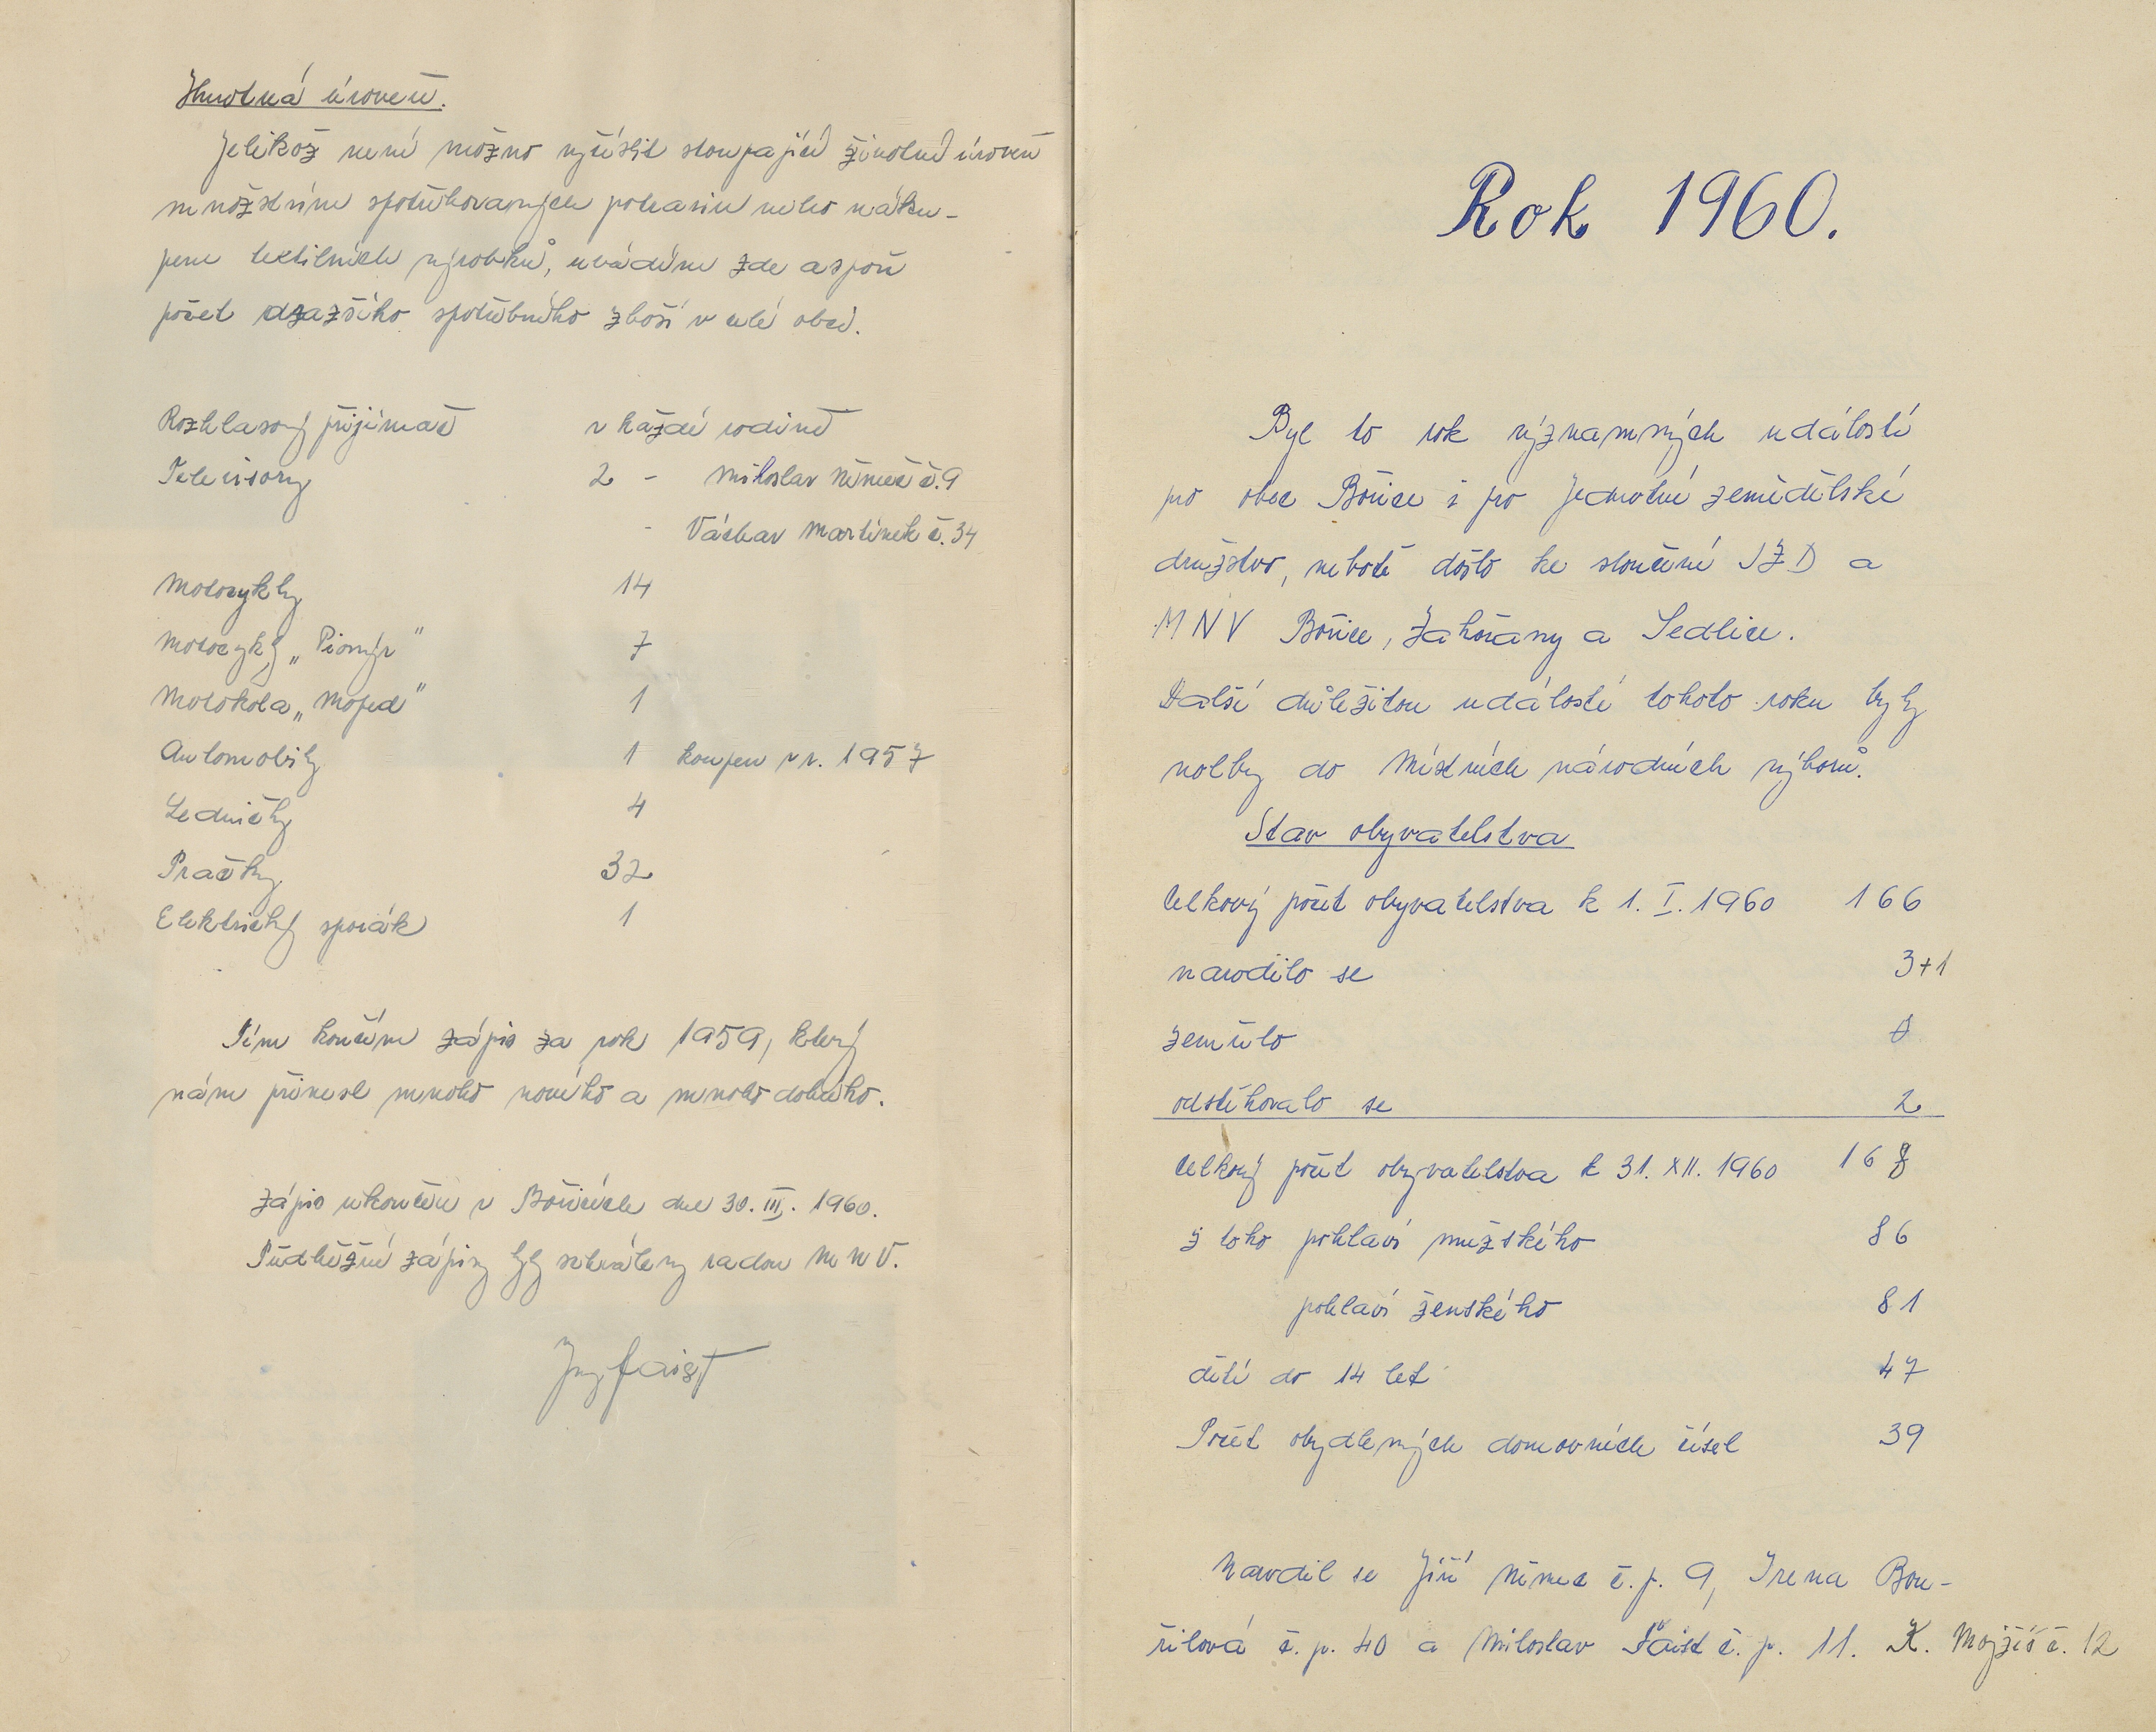 Hmotná úroveň.
Jelikož není možno vyčíslit stoupající životní úroveň
množstvím spotřebovaných potravin nebo náku-
pem textilních výrobků, uvádím zde aspoň
počet dražšího spotřebního zboží v celé obci.
Rozhlasový přijímač v každé rodině
Televisory 2 - Miloslav Němec č. 9
- Václav Martínek č. 34
Motocykly 14
Motocykly „Pionýr" 7
Motokola „Moped" 1
Automobily 1 koupen v r. 1957
Ledničky 4
Pračky 32
Elektrický sporák 1
Tím končím zápis za rok 1959, který
nám přinesl mnoho nového a mnoho dobrého.
Zápis ukončen v Bořicích dne 30. III. 1960.
Předběžné zápisy byly schváleny radou MNV.
Ing Faist
Rok 1960.
Byl to rok významných událostí
pro obec Bořice i pro Jednotné zemědělské
družstvo, neboť došlo ke sloučení JZD a
MNV Bořice, Zahořany a Sedlice.
Další důležitou událostí tohoto roku byly
volby do Místních národních výborů.
Stav obyvatelstva
Celkový počet obyvatelstva k 1. I. 1960 166
narodilo se 3+1
zemřelo 0
odstěhovalo se 2
Celkový počet obyvatelstva k 31. XII. 1960
z toho pohlaví mužského 86
pohlaví ženského 81
dětí do 14 let 47
Počet obydlených domovních čísel 39
Narodil se Jiří Němec č.p. 9, Irena Bou-
řilová č.p. 40 a Miloslav Faist č.p. 11. K. Mojžíš č. 12